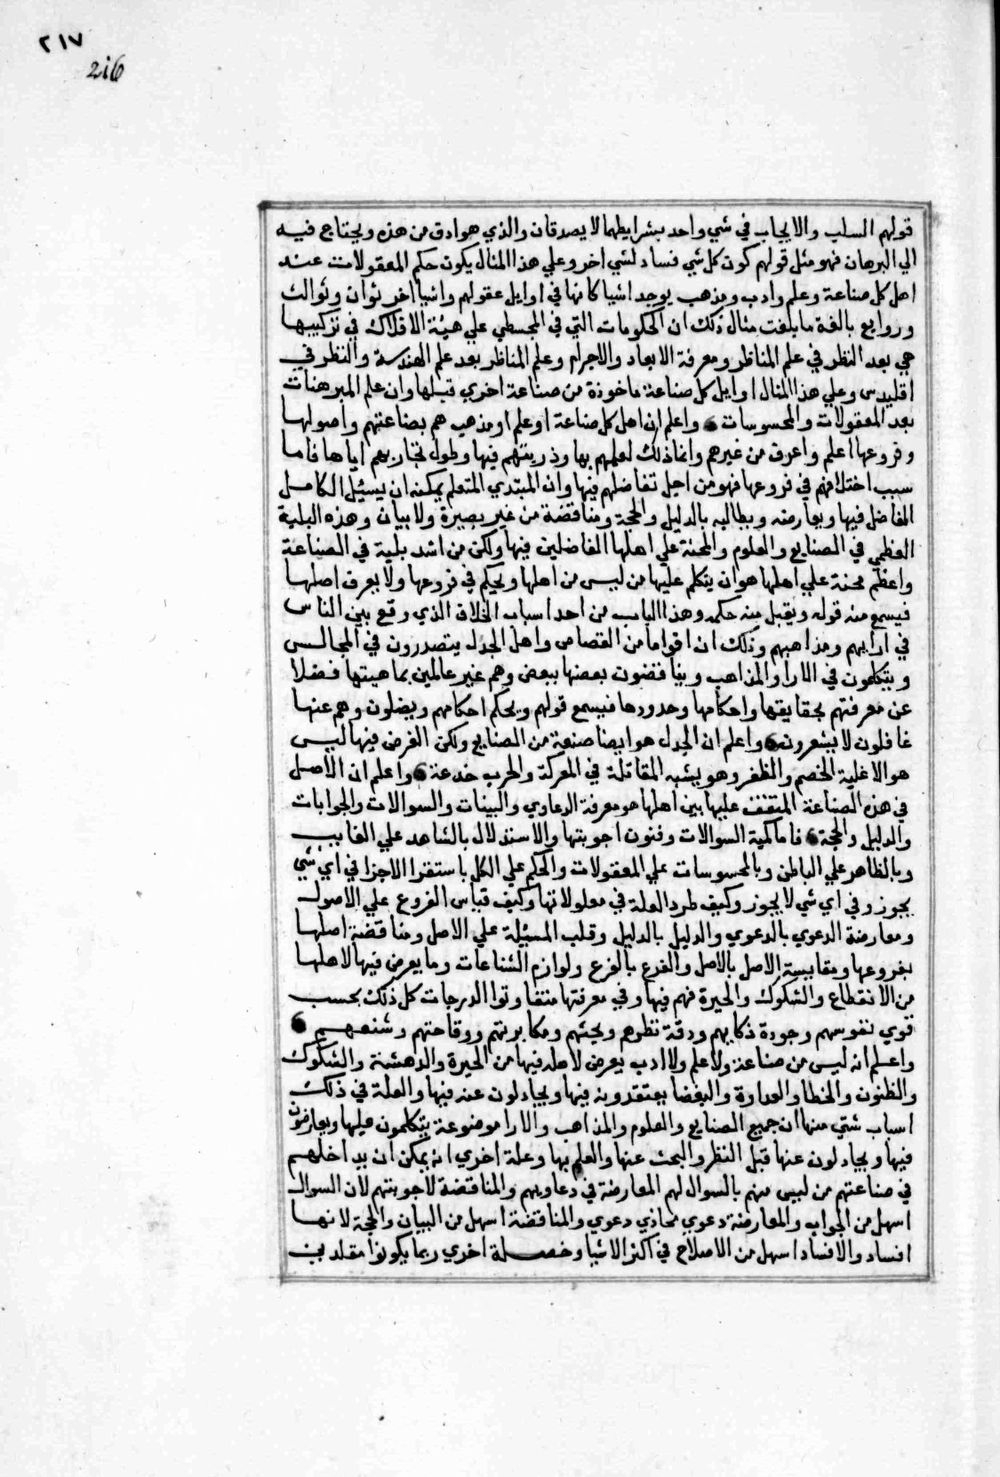 ٢١٧
216
قولهم السلب والايجاب في شي واحد بشرايطهما لا يصدقان والذي هو ادق من هذه ويحتاج فيه
الي البرهان فهو مثل قولهم كون كل شي فساد لشي اخر وعلي هذا المثال يكون حكم المعقولات عند
اهل كل صناعة وعلم وادب ومذهب يوجد اشيا كانها في اوايل عقولهم واشيا اخر ثوان وثوالث
وروابع بالغة ما بلغت مثال ذلك ان الحكومات التي في المجسطي علي هيئة الافلاك في تركيبها
هي بعد النظر في علم المناظر ومعرفة الابعاد والاجرام وعلم المناظر بعد علم الهندسة والنظر في
اقليدس وعلي هذا المثال اوايل كل صناعة ماخوذة من صناعة اخري قبلها وان علم المبرهنات
بعد المعقولات والمحسوسات واعلم ان اهل كل صناعة او علم او مذهب هم بصناعتهم واصولها
وفروعها اعلم واعرف من غيرهم وانما ذلك لعلمهم بها ودربتهم فيها وطول تجاربهم اياها فاما
سبب اختلافهم في فروعها فهو من اجل تفاضلهم فيها وان المبتدي المتعلم يمكنه ان يسيئل الكامل
الفاضل فيها ويعارضه ويطالبه بالدليل والحجة ومناقضة من غير بصيرة ولا بيان وهذه البلية
العظمي في الصنايع والعلوم والمحنة علي اهلها الفاضلين فيها ولكن من اشد بلية في الصناعة
واعظم محنة علي اهلها هو ان يتكلم عليها من ليس من اهلها ويحكم في فروعها ولا يعرف اصلها
فيسمع منه قوله ويقبل منه حكمه وهذا الباب من احد اسباب الخلاف الذي وقع بين الناس
في ارايهم ومذاهبهم وذلك ان اقواما من القصاص واهل الجدل يتصدرون في المجالس
ويتكلمون في الارا والمذاهب ويناقضون بعضها ببعض وهم غير عالمين بماهيتها فضلا
عن معرفتهم بحقايقها واحكامها وحدودها فيسمع قولهم ويحكم احكامهم ويضلون وهم عنها
غافلون لا يشعرون واعلم ان الجدل هو ايضا صنعة من الصنايع ولكن الغرض فيها ليس
هو الا غلبة الخصم والظفر وهو يشبه المقاتلة في المعركة والحرب خدعة واعلم ان الاصل
في هذه الصناعة المتفق عليها بين اهلها هو معرفة الدعاوي والبينات والسوالات والجوابات
والدليل والحجة فاما كمية السوالات وفنون اجوبتها والاستدلال بالشاهد علي الغايب
وبالظاهر علي الباطن وبالمحسوسات علي المعقولات والحكم علي الكل باستقرا الاجزا في اي شي
يجوز وفي اي شي لا يجوز وكيف طرد العلة في معلولاتها وكيف قياس الفروع علي الاصول
ومعارضة الدعوي بالدعوي والدليل بالدليل وقلب المسيئلة علي الاصل ومناقضة اصلها
بفروعها ومقايسة الاصل بالاصل والفرع بالفرع ولوازم الشناعات وما يعرض فيها لاهلها
من الانقطاع والشكوك والحيرة فهم فيها وفي معرفتها متفاوتوا الدرجات كل ذلك بحسب
قوي نفوسهم وجودة ذكايهم ودقة نظرهم وبحثهم ومكابرتهم ووقاحتهم وشنعهم
واعلم انه ليس من صناعة ولا علم ولا ادب يعرض لاهله فيها من الحيرة والدهشة والشكوك
والظنون والخطا والعداوة والبغضا يعتقدونه فيها ويجادلون عنه فيها والعلة في ذلك
اسباب شتي منها ان جميع الصنايع والعلوم والمذاهب والارا موضوعة يتكلمون عليها ويعارضون
فيها ويجادلون عنها قبل النظر والبحث عنها والعلم بها وعلة اخري انه يمكن ان يداخلهم
في صناعتهم من ليس منهم بالسوال لهم المعارضة في دعاويهم والمناقضة لاجوبتهم لان السوال
اسهل من الجواب والمعارضة دعوي تحاذي دعوي والمناقضة اسهل من البيان والحجة لانها
افساد والافساد اسهل من الاصلاح في اكثر الاشيا وخصلة اخري ربما يكونوا مقلدين